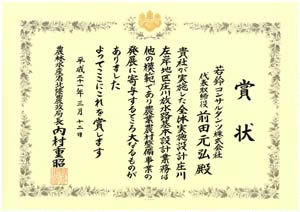 賞状
若鈴コンサルタンツ株式会社
代表取締役 前田元弘殿
貴社が実施した全体実施設計庄川
左岸地区庄川放水路基本設計業務は
他の模範であり農業農村整備事業の
発展に寄与するところ大なるものが
ありました
よってここにこれを賞します
平成二十一年三月十二日
農林水産省北陸農政局長 内村重昭